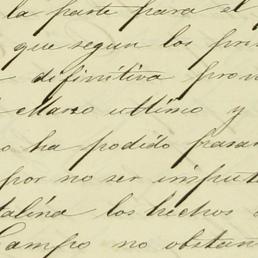 la parte para el
que segun los prin
definitiva prov
Marzo ultimo y
o ha podido pasar
por no ser imputa
talina los hechos
Campo no obstan